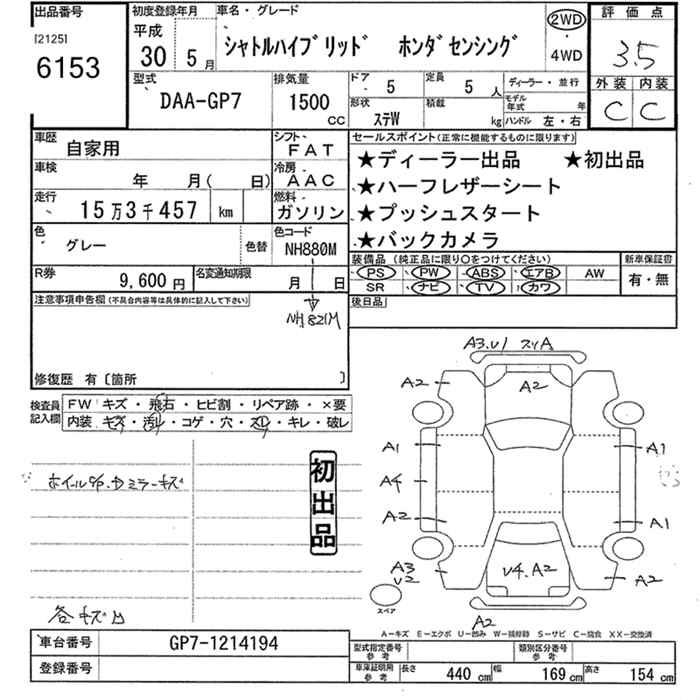 出品番号 初度登録年月 車名・グレード 評価点
[2125] 平成 シャトルハイブリッド ホンダセンシング 2WD
6153 30 5月 ・ 4WD 3.5
型式 排気量 ドア 5 定員 5人 ディーラー・並行 外装 内装
DAA-GP7 1500cc 形状 ステW 積載 kg モデル年式 年 C C
ハンドル 左・右
車歴 自家用 シフト FAT セールスポイント(正常に機能するものに限ります)
車検 年 月( 日) 冷房 AAC ★ディーラー出品 ★初出品
走行 15万3千457 km 燃料 ガソリン ★ハーフレザーシート
★プッシュスタート
色 グレー 色替 色コード NH880M ★バックカメラ
R券 9,600円 名変通知期限 月 日 装備品(純正品に限り○をつけてください) 新車保証書
PS PW ABS エアB AW 有・無
SR ナビ TV カワ
注意事項申告欄(不具合内容等は具体的に記入して下さい) 後日品
NH821M
修復歴 有〔箇所 〕
検査員記入欄 FW キズ・飛石・ヒビ割・リペア跡・×要
内装 キズ・汚レ・コゲ・穴・スレ・キレ・破レ
A3.U1 スリA
A2 A2
A1 A1
ホイルキズ A4
初出品
A2 A1
A3 U4.A2
U2 A2
スペア
各キズ凹 A2
A-キズ E-エクボ U-凹み W-補修跡 S-サビ C-腐食 XX-交換済
車台番号 GP7-1214194 型式指定番号 参考 類別区分番号 参考
登録番号 車庫証明用 参考 長さ 440cm 幅 169cm 高さ 154cm